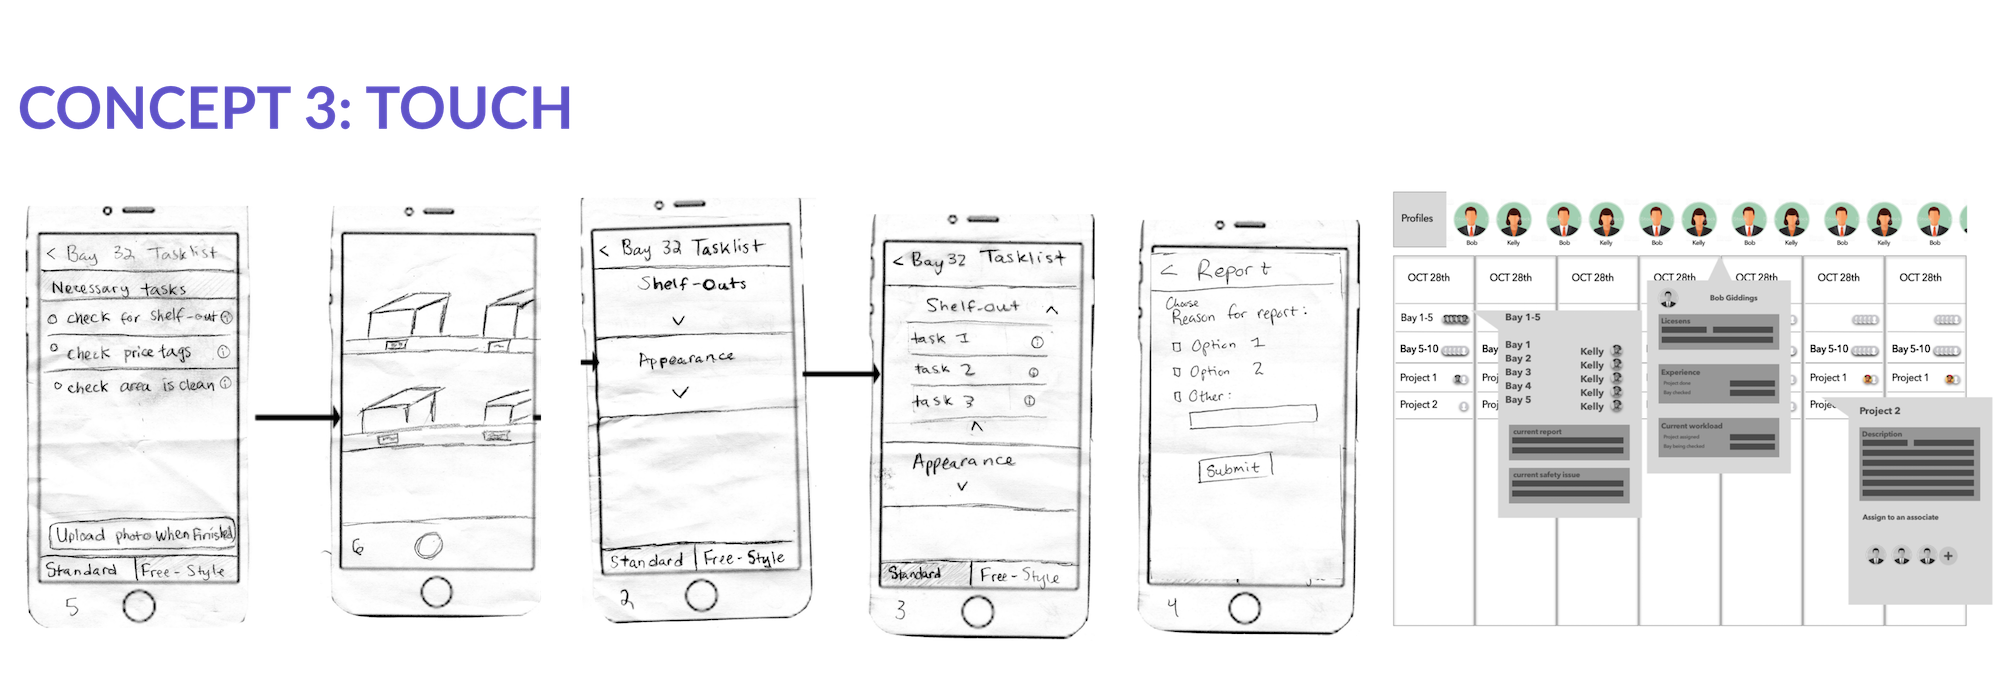 CONCEPT 3: TOUCH
< Bay 32 Tasklist
Necessary tasks
check for shelf-out i
check price tags i
check area is clean i
Upload photo when Finished
Standard | Free-Style
5
6
< Bay 32 Tasklist
Shelf-Outs
Appearance
Standard | Free-Style
2
< Bay 32 Tasklist
Shelf-out
task 1 i
task 2 i
task 3 i
Appearance
Standard | Free-Style
3
< Report
Choose
Reason for report:
Option 1
Option 2
Other:
Submit
4
Profiles
Bob Kelly Bob Kelly Bob Kelly Bob Kelly Bob Kelly Bob
OCT 28th OCT 28th OCT 28th OCT 28th OCT 28th OCT 28th OCT 28th
Bay 1-5
Bay 5-10 Bay Bay 5-10 Bay 5-10
Project 1 Proj Project 1 Project 1
Project 2 Proj Proje
Bay 1-5
Bay 1 Kelly
Bay 2 Kelly
Bay 3 Kelly
Bay 4 Kelly
Bay 5 Kelly
current report
current safety issue
Bob Giddings
Licesens
Experience
Project done
Bay checked
Current workload
Project assigned
Bay being checked
Project 2
Description
Assign to an associate
+